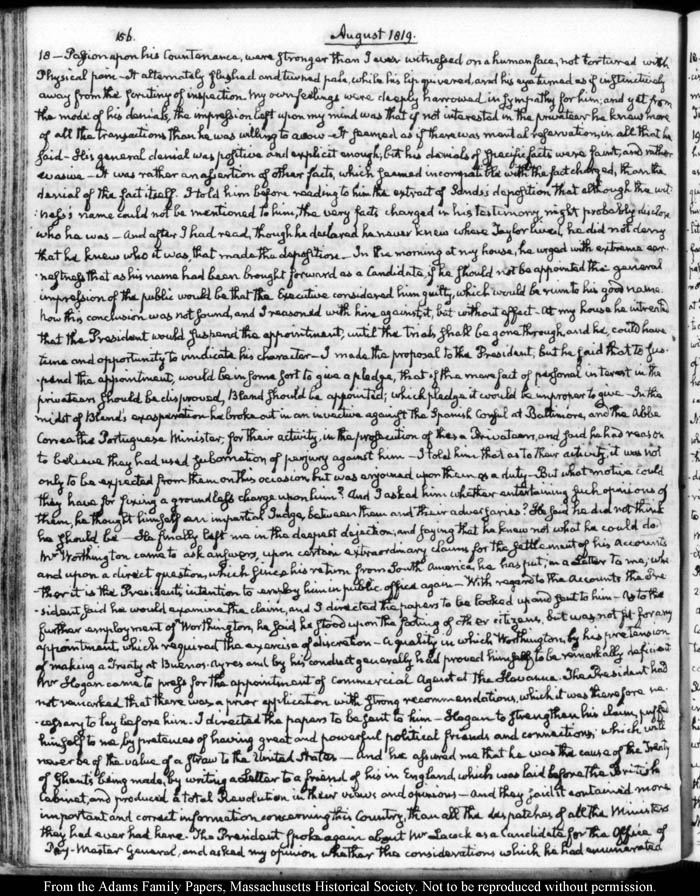 156.
August 1819.
18 — Passion upon his Countenance, were stronger than I ever witnessed on a human face, not tortured with
Physical pain — It alternately flushed and turned pale, while his lip quivered, and his eye turned as if instinctively
away from the scrutiny of inspection. My own feelings were deeply harrowed in sympathy for him; and yet from
the mode of his denials, the impression left upon my mind was that if not interested in the privateer he knew more
of all the transactions than he was willing to avow — It seemed as if there was mental reservation, in all that he
said — His general denial was positive and explicit enough, but his denials of specific facts were faint, and rather
evasive — It was rather an assertion of other facts, which seemed incompatible with the fact charged, than the
denial of the fact itself. I told him before reading to him the extract of Sands's deposition that although the wit-
:ness's name could not be mentioned to him, the very facts charged in his testimony might probably disclose
who he was — and after I had read, though he declared he never knew where Taylor lived, he did not deny
that he knew who it was, that made the deposition — In the morning at my house, he urged with extreme ear-
:nestness that as his name had been brought forward as a Candidate, if he should not be appointed the general
impression of the public would be that the Executive considered him guilty, which would be ruin to his good name.
how this conclusion was not found, and I reasoned with him against it, but without effect — At my house he intreated
that the President would suspend the appointment, until the trials shall be gone through, and he, could have
time and opportunity to vindicate his character — I made the proposal to the President, but he said that to sus-
:pend the appointment, would be in some sort to give a pledge, that if the mere fact of personal interest in the
privateers should be disproved, Bland should be appointed; which pledge it would be improper to give — In the
midst of Bland's exasperation he broke out in an invective against the Spanish Consul at Baltimore, and the Abbé
Correa the Portuguese Minister, for their activity, in the prosecution of these Privateers, and said he had reason
to believe they had used subornation of perjury against him — I told him that as to their activity, it was not
only to be expected from them on this occasion, but was enjoined upon them as a duty — But what motive could
they have for fixing a groundless charge upon him? And I asked him whether entertaining such opinions of
them, he thought himself an impartial Judge, between them and their adversaries? He said he did not think
he should be — He finally left me in the deepest dejection; and saying that he knew not what he could do
Mr Worthington came to ask answers, upon certain extraordinary claims for the settlement of his Accounts
and upon a direct question, which since his return from South America, he has put, in a Letter to me, whe
:ther it is the President's intention to employ him in public office again — With regard to the Accounts the Pre-
:sident said he would examine the claim, and I directed the papers to be looked up and sent to him — As to the
further employment of Worthington, he said he stood upon the footing of other citizens, but was not fit for any
appointment which required the exercise of discretion — A quality in which Worthington, by his pretension
of making a Treaty at Buenos-Ayres and by his conduct generally had proved himself to be remarkably deficient
Mr Hogan came to press for the appointment of Commercial Agent at the Havanna. The President had
not remarked that there was a prior application with strong recommendations, which it was therefore ne-
:cessary to lay before him. I directed the papers to be sent to him — Hogan to strengthen his claim, puffed
himself to me by pretences of having great and powerful political friends and connections, which will
never be of the value of a straw to the United States — And he assured me that he was the cause of the Treaty
of Ghent's being made, by writing a Letter to a friend of his in England, which was laid before the British
Cabinet, and produced a total Revolution in their views and opinions — And they said it contained more
important and correct information concerning this Country, than all the despatches of all the Ministers
they had ever had here. The President spoke again about Mr Lacock as a Candidate for the Office of
Pay-Master General, and asked my opinion whether the considerations which he had enumerated
From the Adams Family Papers, Massachusetts Historical Society. Not to be reproduced without permission.